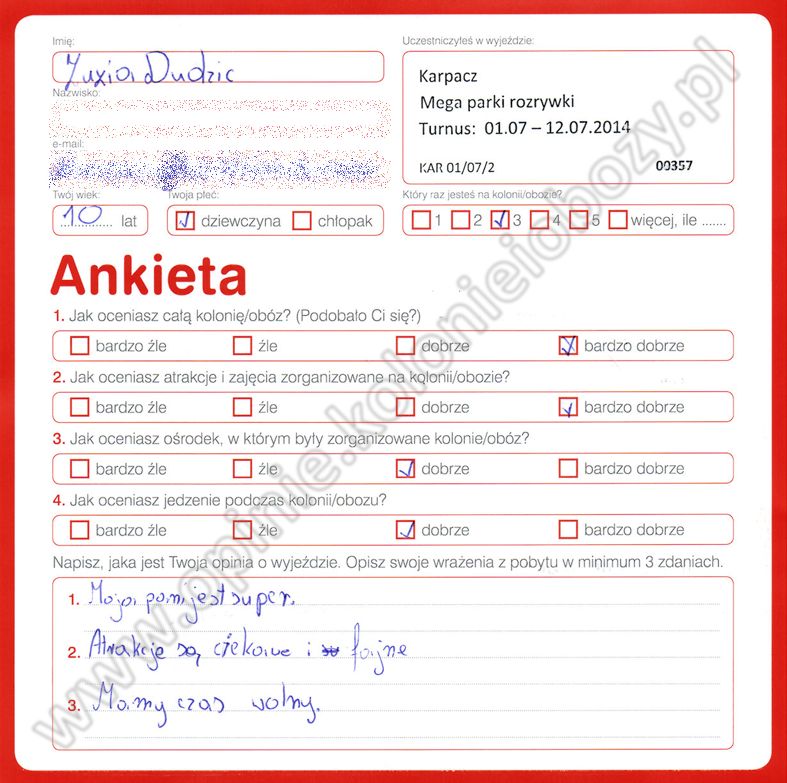 Imię:
Zuzia Dudzic
Nazwisko:
e-mail:
Twój wiek:
10 lat
Twoja płeć:
dziewczyna chłopak
Uczestniczyłeś w wyjeździe:
Karpacz
Mega parki rozrywki
Turnus: 01.07 – 12.07.2014
KAR 01/07/2 00357
Który raz jesteś na kolonii/obozie?
1 2 3 4 5 więcej, ile .......
Ankieta
1. Jak oceniasz całą kolonię/obóz? (Podobało Ci się?)
bardzo źle źle dobrze bardzo dobrze
2. Jak oceniasz atrakcje i zajęcia zorganizowane na kolonii/obozie?
bardzo źle źle dobrze bardzo dobrze
3. Jak oceniasz ośrodek, w którym były zorganizowane kolonie/obóz?
bardzo źle źle dobrze bardzo dobrze
4. Jak oceniasz jedzenie podczas kolonii/obozu?
bardzo źle źle dobrze bardzo dobrze
Napisz, jaka jest Twoja opinia o wyjeździe. Opisz swoje wrażenia z pobytu w minimum 3 zdaniach.
1. Moja pani jest super.
2. Atrakcje są ciekawe i fajne
3. Mamy czas wolny.
www.opinie.kolonieiobozy.pl